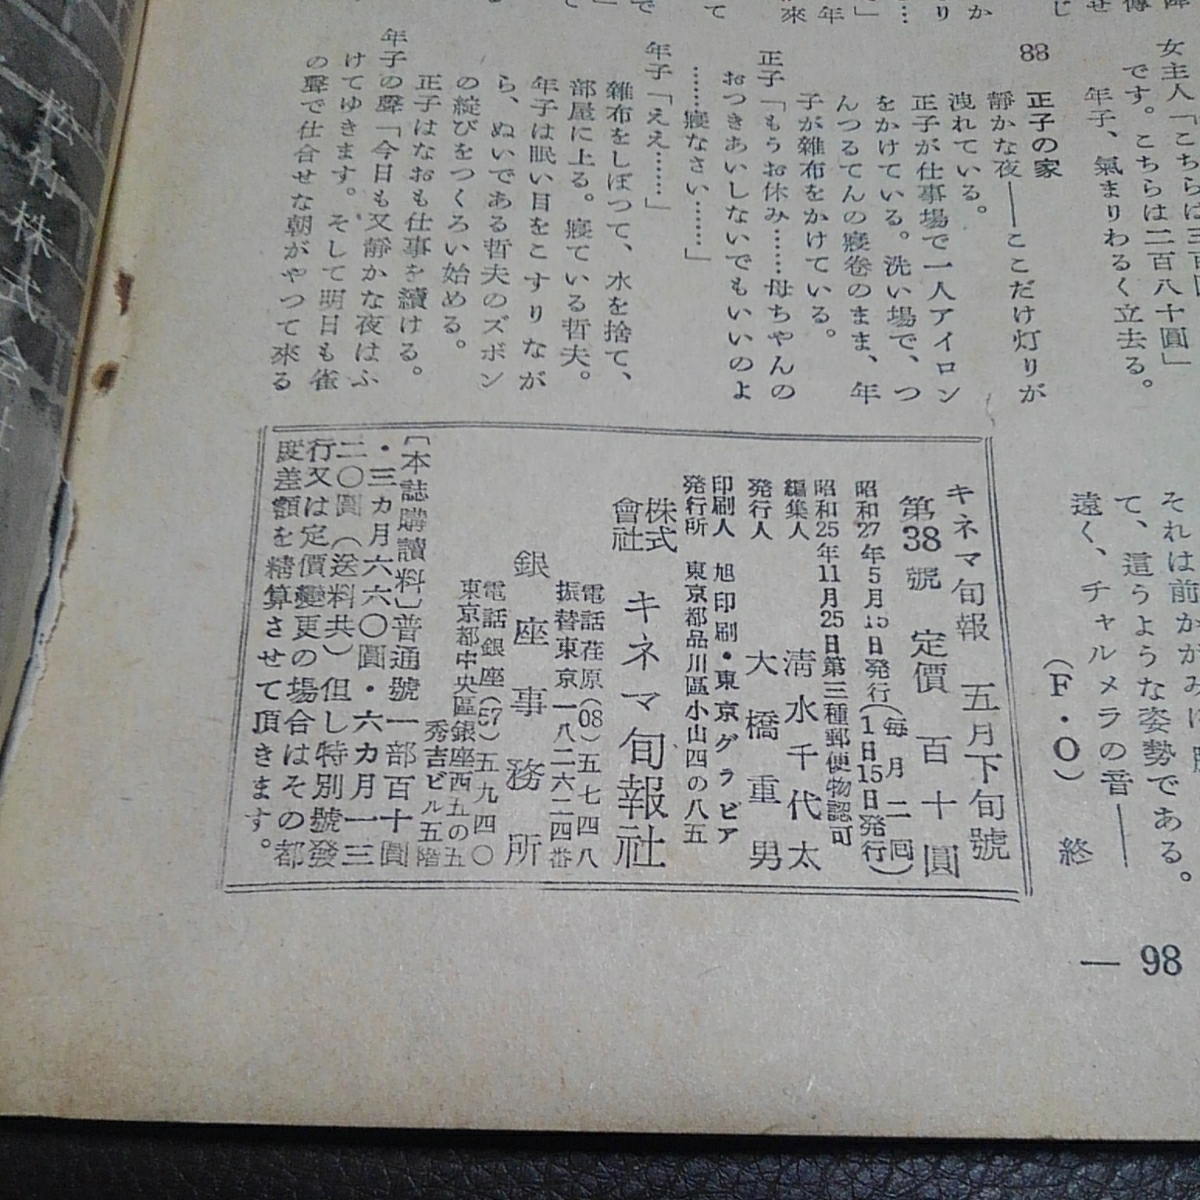 女主人「こちらは三百圓
です。こちらは二百八十圓」
年子、氣まりわるく立去る。
88 正子の家
靜かな夜――ここだけ灯りが
洩れている。
正子が仕事場で一人アイロン
をかけている。洗い場で、つ
んつるてんの寢卷のまま、年
子が雜布をかけている。
正子「もうお休み……母ちやんの
おつきあいしないでもいいのよ
……寢なさい……」
年子「ええ……」
雜布をしぼつて、水を捨て、
部屋に上る。寢ている哲夫。
年子は眠い目をこすりなが
ら、ぬいである哲夫のズボン
の綻びをつくろい始める。
正子はなおも仕事を續ける。
年子の聲「今日も又靜かな夜はふ
けてゆきます。そして明日も雀
の聲で仕合せな朝がやつて來る
それは前かがみに
て、這うような姿勢である。
遠く、チャルメラの音――
（F・O） 終
キネマ旬報 五月下旬號
第38號 定價 百十圓
昭和27年5月15日発行（毎月二囘1日15日発行）
昭和25年11月25日第三種郵便物認可
編集人 淸水千代太
発行人 大橋重男
印刷人 旭印刷・東京グラビア
発行所 東京都品川區小山四の八五
株式會社 キネマ旬報社
電話荏原（08）五七四八
振替東京一八二六二四番
銀座事務所
電話銀座（57）五九四〇
東京都中央區銀座西五の五
秀吉ビル五階
〔本誌購讀料〕普通號一部百十圓
・三カ月六六〇圓・六カ月一三
二〇圓（送料共）但し特別號發
行又は定價變更の場合はその都
度差額を精算させて頂きます。
— 98
松竹株式会社